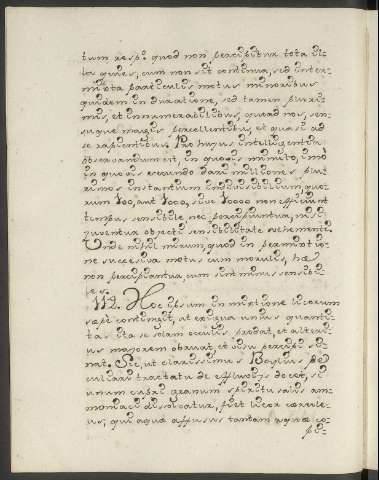 tum resp.º quod non percibitur tota il-
la quies, cum non sit continua, sed inter-
mixta particulis motus minoribus
quidem in duratione, sed tamen pluri-
mis, et innumerabilibus, quoad nos, sen-
suque magis percellentibus, et quasi ad
se rapientibus. Pro hujus intelligentia
observandum est, in quovis minuto, imò
in quovis secundo dari milliones plu-
rimos instantium indivisibilium, quo-
rum 100, aut 1000, sive 10000 non efficiunt
tempus sensibile nec percipiuntur, nisi
juventur objecti sensibilitate vehementi.
Unde nihil mirum, quod in permixtio-
ne successiva motus cum morulis, hæ
non percipiantur, cum sint minus sensibi-
les.
112. Hoc ipsum in mixtione licorum
sæpè contingit, ut exigua unius quanti-
tas ita se solam oculis prodat, et alteri-
us majorem obruat, et quasi percipi si-
nat. Sic, ut clarissimus Boylius de
culiari tractatu de effluviis docet, si
unum cupri granum spiritu salis am-
moniaci dissolvatur, fiet licor cærule-
us, qui aquæ affusus tantam aquæ co-